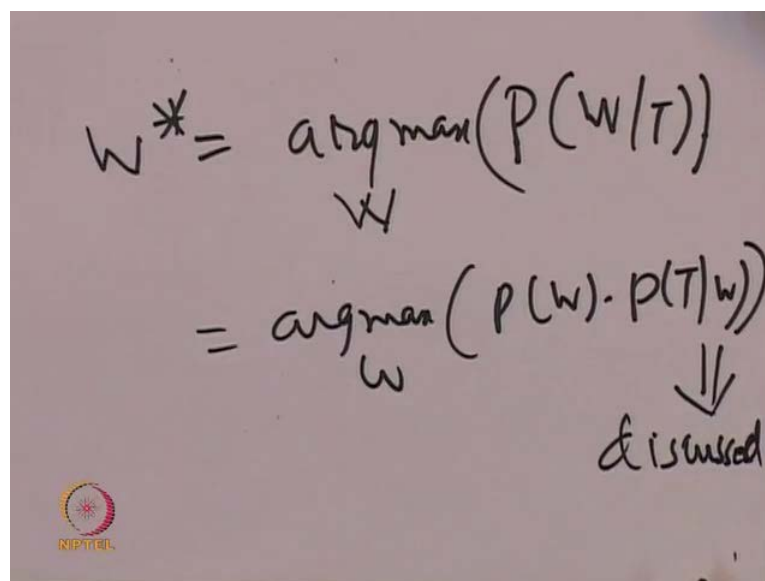 W* = argmax (P(W/T))
W
= argmax (P(W). P(T|W))
W
discussed
NPTEL